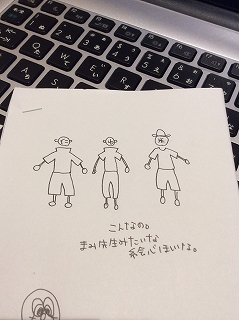 こんなの。
まみ先生みたいな
絵心ほしいな。